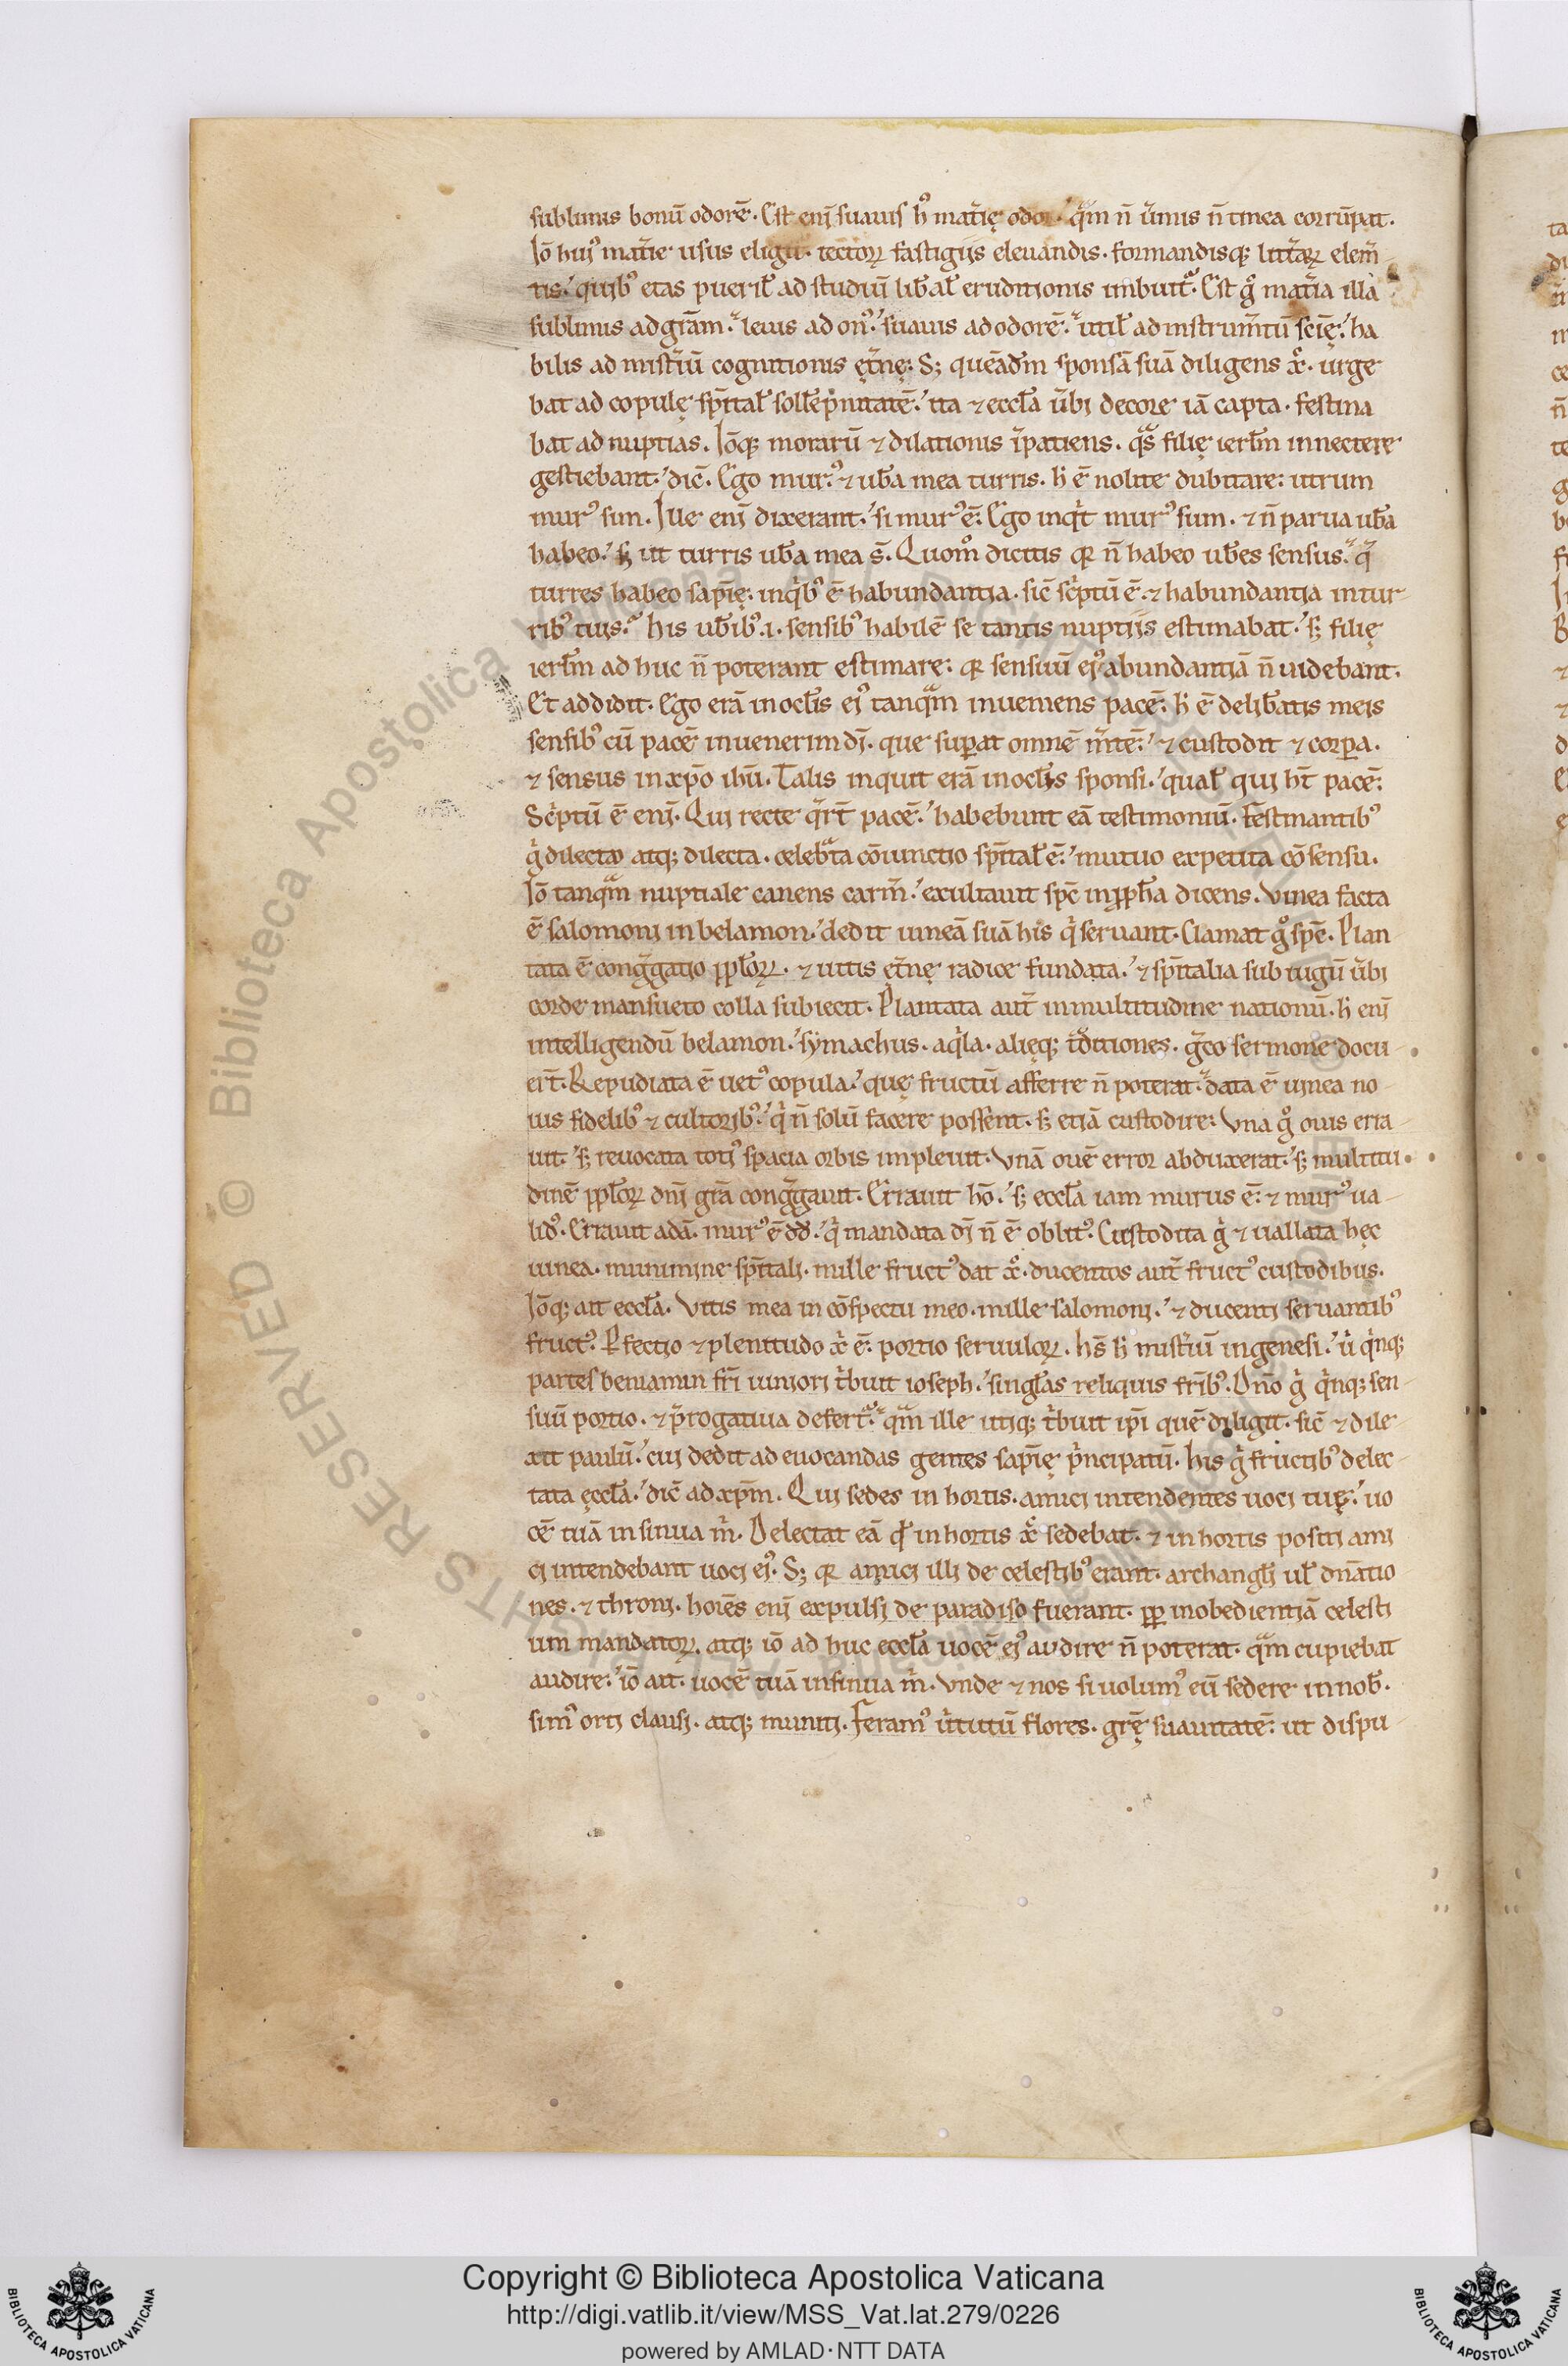 sublimis bonū odorē. Est enī suauis hꝰ mat̄ię odor. qͣm n̄ ūmis n̄ tinea corrūpat.
Iō huiꝰ mat̄ie usus eligit̄. tectoꝝ fastigiis eleuandis. formandisqꝫ litt̄aꝝ elem̄
tis. quibꝰ etas pueril̄ ad studiū lib̄al̄ eruditionis imbuit᷑. Est gͦ mat̄ia illa
sublimis ad grām. leuis ad onꝰ. suauis ad odorē. util̄ ad instrum̄tū scię. ha
bilis ad mist̄iū cognitionis ęt̄nę. Sꝫ queādm̄ sponsā suā diligens xp̄c. urge
bat ad copulę sp̄ital̄ soll̄ēpnitatē. ita ⁊ eccl̄a ūbi decore iā capta. festina
bat ad nuptias. Iōqꝫ moraꝝ ⁊ dilationis īpatiens. qͣs filię ierl̄m innectere
gestiebant. dic̄. Ego murꝰ. ⁊ ub̄a mea turris. h̄ ē nolite dubitare. utrum
murꝰ sim. Ille enī dixerant. si murꝰ ē. Ego inqͥt murꝰ sum. ⁊ n̄ parua ub̄a
habeo. sꝫ ut turris ub̄a mea s̄. Quomͦ dicitis qꝛ n̄ habeo ub̄es sensus. qͣ
turres habeo sapīę. inqͥbꝰ ē habundantia. sic̄ sc̄ptū ē. ⁊ habundantia intur
ribꝰ tuis. His ub̄ibꝰ .i. sensibꝰ habilē se tantis nuptiis estimabat. sꝫ filię
ierl̄m ad huc n̄ poterant estimare. qꝛ sensuū eiꝰ abundantiā n̄ uidebant.
Et addidit. Ego erā in ocl̄is eiꝰ tanqͣm inueniens pacē. h̄ ē delib̄atis meis
sensibꝰ cū pacē inuenerim dī. que suꝑat omnē m̄tē. ⁊ custodit ⁊ corꝑa.
⁊ sensus in xp̄o ih̄u. Talis inquit erā in ocl̄is sponsi. qual̄ qui h̄t pacē.
Sc̄ptū ē enī. Qui recte qͣrt̄ pacē. habebunt eā testimoniū. Festinantibꝰ
gͥ dilecto atqꝫ dilecta. celeb̄ta cōiunctio sp̄ital̄ ē. mutuo expetita cōsensu.
Iō tanqͣm nuptiale canens carm̄. exultauit sp̄c in ꝓph̄a dicens. Vinea facta
ē salomoni in belamon. dedit uineā suā his qͥ seruant. Clamat gͦ sp̄c. Plan
tata ē conḡgatio ppl̄oꝝ. ⁊ uitis ęt̄nę radice fundata. ⁊ sp̄italia sub iugū ūbi
corde mansueto colla subiecit. Plantata aut̄ in multitudine nationū. h̄ enī
intelligendū belamon. symachus. aqͥla. alięqꝫ tͣditiones. ḡco sermone docu
ert̄. Repudiata ē uetꝰ copula. quę fructū afferre n̄ poterat. data ē uinea no
uis fidelibꝰ ⁊ cultoribꝰ. qͥ n̄ solū facere possent. sꝫ etiā custodire. Vna gͦ ouis erra
uit. sꝫ reuocata totiꝰ spacia orbis impleuit. Vnā ouē error abduxerat. sꝫ multitu
dinē ppl̄oꝝ dn̄i gr̄a conḡgauit. Errauit hō. sꝫ eccl̄a iam murus ē. ⁊ murꝰ ua
lidꝰ. Errauit adā. murꝰ ē dd̄. qͥ mandata dī n̄ ē oblitꝰ. Custodita gͥ ⁊ uallata hęc
uinea. munimine sp̄itali. mille fructꝰ dat xp̄o. ducentos aut̄ fructꝰ custodibus.
Iōqꝫ ait eccl̄a. Vitis mea in cōspectu meo. mille salomoni. ⁊ ducenti seruantibꝰ
fructꝰ. Ꝑfectio ⁊ plenitudo xp̄i ē. portio seruuloꝝ. Hs̄ h̄ mist̄iū in genesi. uͥ qͥnqꝫ
partes beniamin fr̄i iuniori tͥbuit ioseph. singl̄as reliquis fr̄ibꝰ. Dn̄o gͥ qͥnqꝫ sen
suū portio. ⁊ p̄rogatiua defert᷑. qͣm ille utiqꝫ tͥbuit ip̄i quē diligit. sic̄ ⁊ dile
xit paulū. cui dedit ad euocandas gentes sapīę pͥncipatū. His gͥ fructibꝰ delec
tata ęccl̄a. dic̄ ad xp̄m. Qui sedes in hortis. amici intendentes uoci tuę. uo
cē tuā insinua m̄. Delectat eā qͩ in hortis xp̄c sedebat. ⁊ in hortis positi ami
ci intendebant uoci eiꝰ. Sꝫ qꝛ amici illi de celestibꝰ erant. archangl̄i ul̄ dn̄atio
nes. ⁊ throni. hoīes enī expulsi de paradiso fuerant. ꝓpͭ inobedientiā celesti
um mandatoꝝ. atqꝫ iō ad huc eccl̄a uocē eiꝰ audire n̄ poterat. qͣm cupiebat
audire. iō ait. uocē tuā insinua m̄. Vnde ⁊ nos si uolumꝰ eū sedere in nob̄.
simꝰ orti clausi. atqꝫ muniti. Feramꝰ ūtutū flores. gr̄ę suauitatē. ut dispu
Copyright © Biblioteca Apostolica Vaticana
http://digi.vatlib.it/view/MSS_Vat.lat.279/0226
powered by AMLAD·NTT DATA
BIBLIOTECA APOSTOLICA VATICANA
BIBLIOTECA APOSTOLICA VATICANA